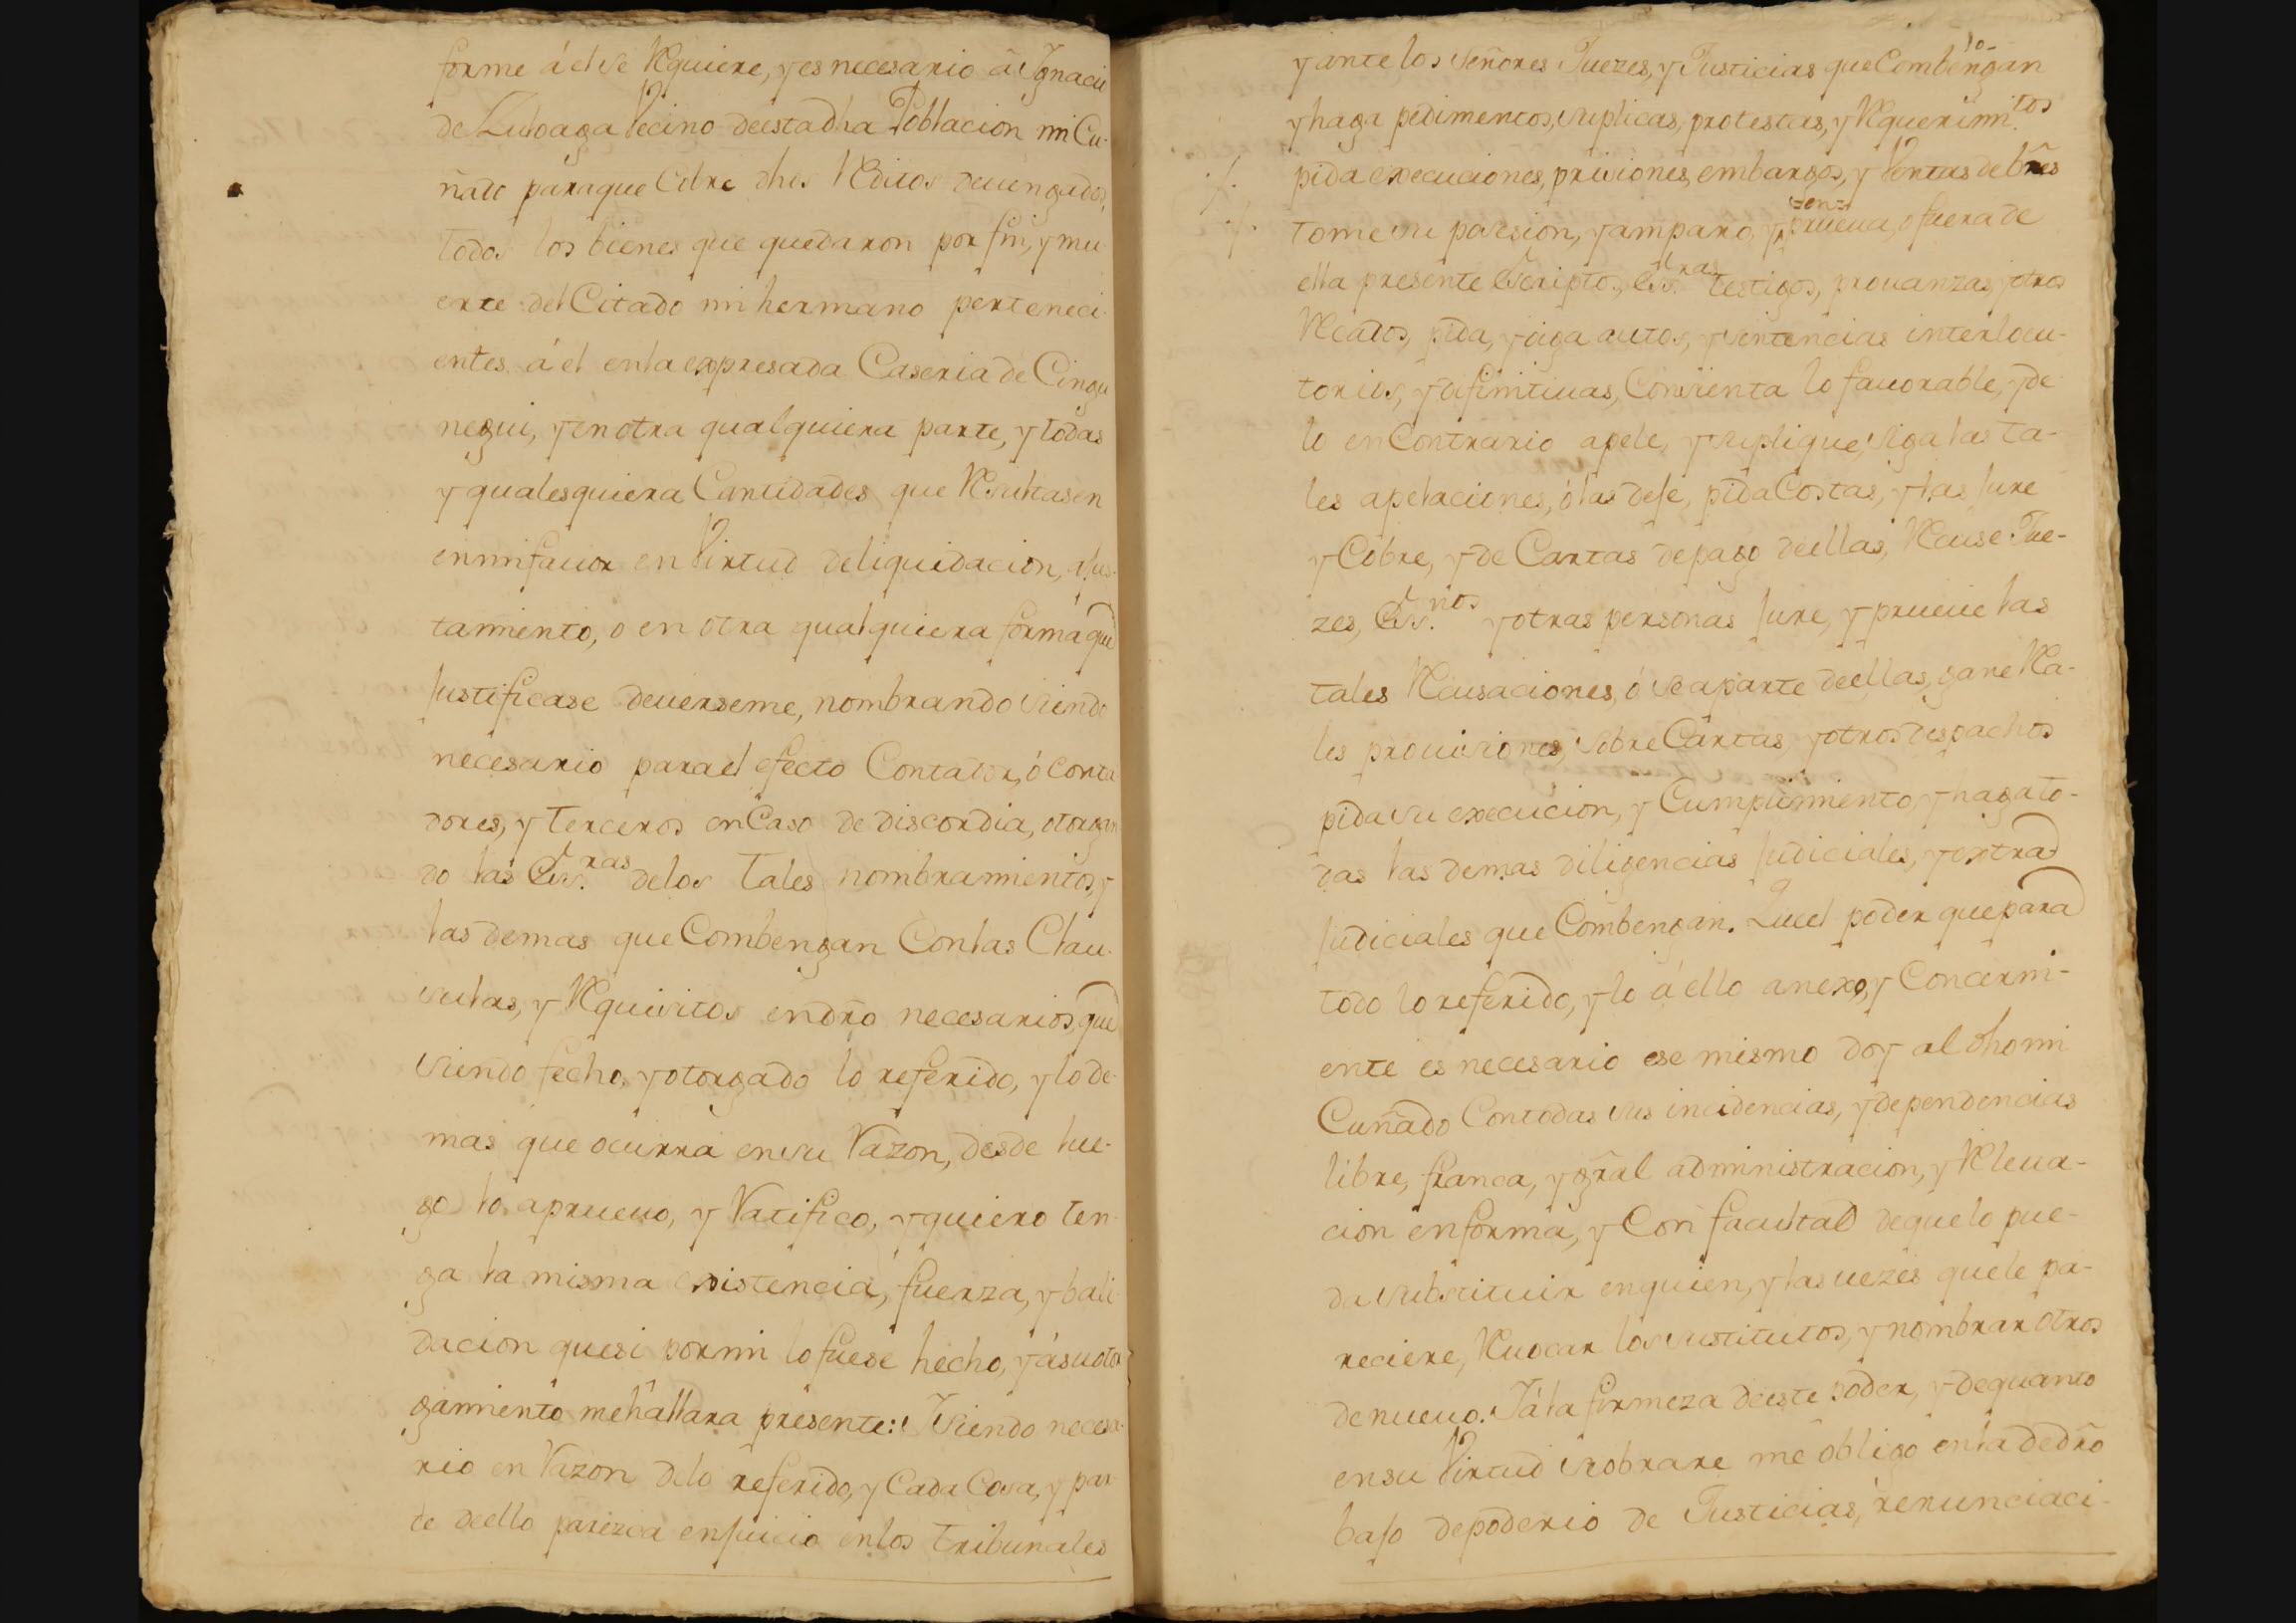 forme á el se Requiere, y es necesario â Ygnacio
de Zuloaga Vecino de esta dha Poblacion mi Cu-
ñado para que Cobre dhos Reditos deuengados,
todos los bienes que quedaron por fin, y mu
erte del Citado mi hermano perteneci
entes á el en la expresada Caseria de Cingu
negui, y en otra qualquiera parte, y todas
y qualesquiera Cantidades que Resultasen
en mi fauor en Virtud de liquidacion, ajus-
tamiento, o en otra qualquiera forma que
Justificase deuerseme, nombrando siendo
necesario para el efecto Contador, ó Conta
dores, y terceros en Caso de discordia, otorgan
do las Ess.ras de los tales nombramientos, y
las demas que Combengan Con las Clau-
sulas, y Requisitos en dro necesarios, que
siendo fecho, y otorgado lo referido, y lo de-
mas que ocurra en su Razon, desde lue-
go lo aprueuo, y Ratifico, y quiero ten-
ga la misma existencia, fuerza, y bali
dacion que si por mi lo fuese hecho, y á su otor
gamiento me hallara presente: Y siendo necesa-
rio en Razon de lo referido, y Cada Cosa, y par-
te de ello parezca en Juicio en los tribunales
y ante los señores Juezes, y Justicias que Combengan
y haga pedimentos, suplicas, protestas, y Requerimi.tos
pida execuciones, prisiones, embargos, y Ventas de bñes
tome su posesion, y amparo, y en prueua, o fuera de
ella presente Escriptos, Ess.ras testigos, prouanzas, y otros
Recados, pida, y oiga autos, y sentencias interlocu-
torias, y difinitiuas, Consienta lo fauorable, y de
lo en Contrario apele, y suplique, siga las ta-
les apelaciones, ó las deje, pida Costas, y las Jure
y Cobre, y de Cartas de pago de ellas, Recuse Jue-
zes, Ess.nos y otras personas Jure, y prueue las
tales Recusaciones, ó se aparte de ellas, gane Rea-
les prouisiones, sobre Cartas, y otros despachos
pida su execucion, y Cumplimiento, y haga to-
das las demas diligencias Judiciales, y extra
Judiciales que Combengan. Que el poder que para
todo lo referido, y lo á ello anexo, y Concerni-
ente es necesario ese mismo doy al dho mi
Cuñado Con todas sus incidencias, y dependencias
libre, franca, y gñral administracion, y Releua-
cion en forma, y Con facultad de que lo pue-
da substituir en quien, y las uezes que le pa-
reciere, Reuocar los sustitutos, y nombrar otros
de nueuo. Y á la firmeza de este poder, y de quanto
en su Virtud se obrare me obligo en la de dro
bajo de poderio de Justicias, renunciaci-